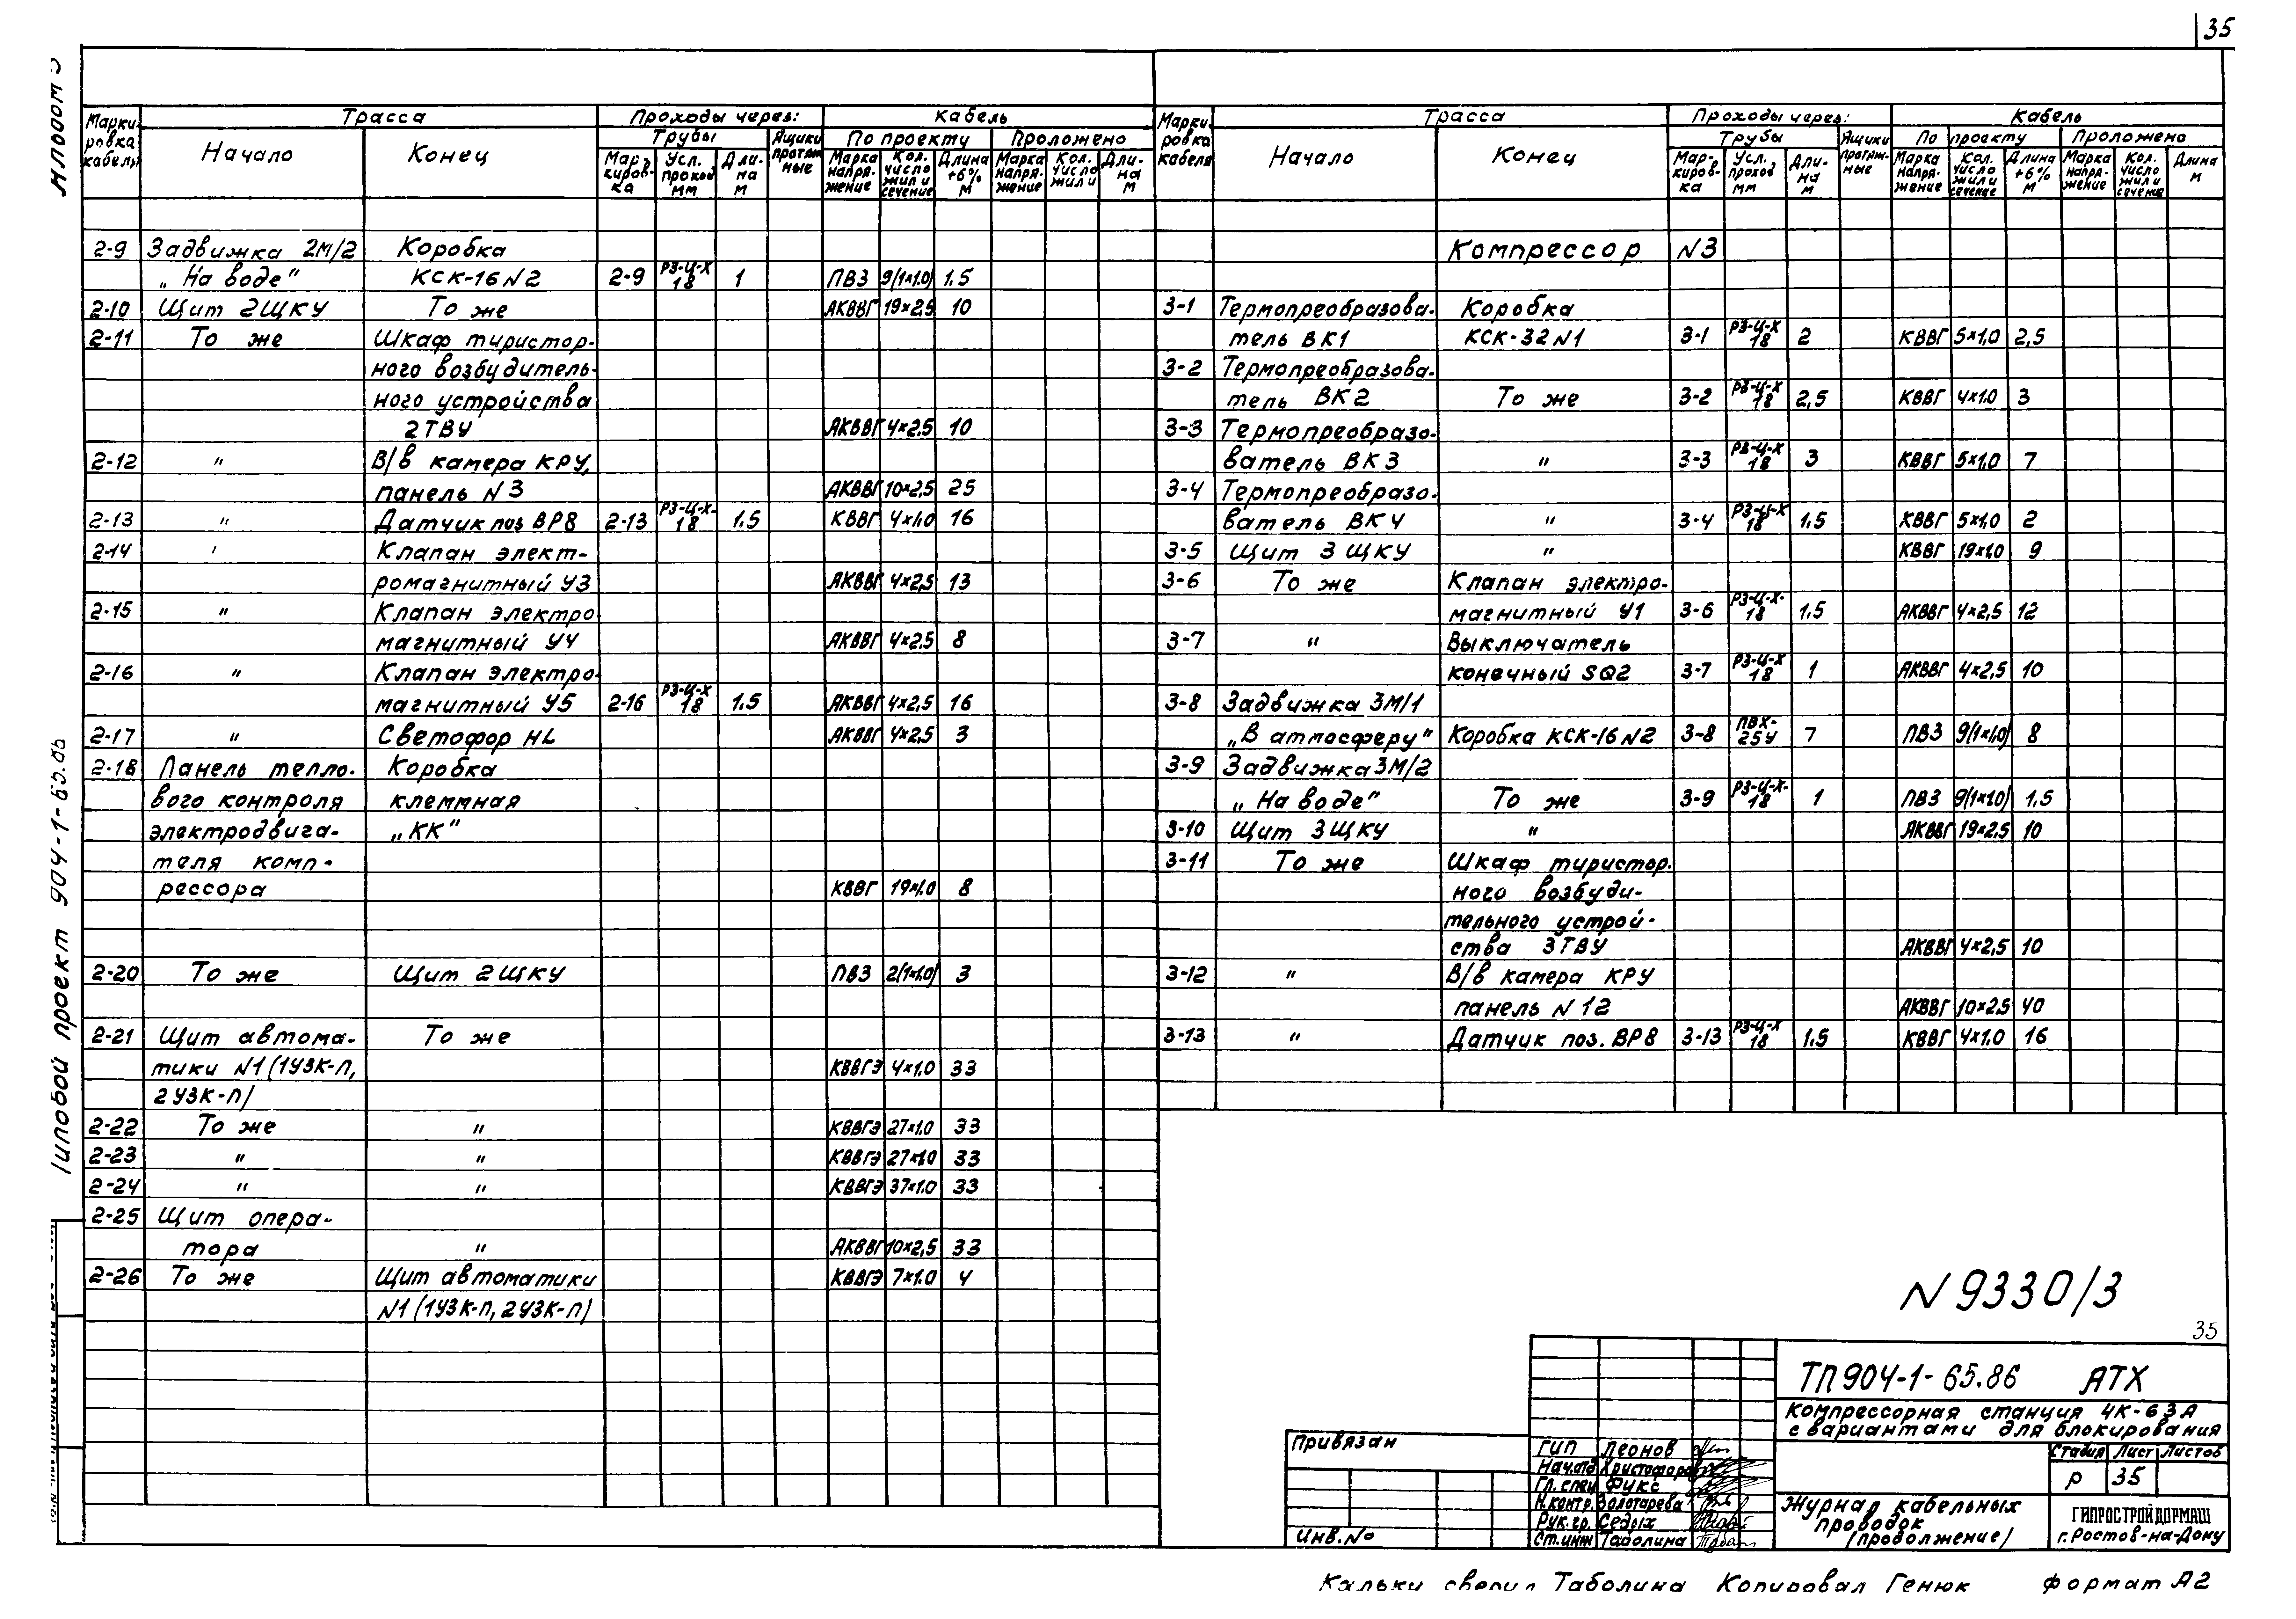 35
Альбом 3
Типовой проект 904-1-65.86
Марки-ровка кабеля | Трасса | Проходы через: | Кабель
Начало | Конец | Трубы | Ящики протяж-ные | По проекту | Проложено
Мар-киров-ка | Усл. проход мм | Дли-на м | Марка напря-жение | Кол. число жил и сечение | Длина +6% м | Марка напря-жение | Кол. число жил и | Дли-на м
2-9 Задвижка 2М/2 Коробка
„На воде" КСК-16 N2 2-9 РЗ-Ц-Х 18 1 ПВЗ 9(1×1.0) 1.5
2-10 Щит 2ЩКУ То же АКВВГ 19×2,5 10
2-11 То же Шкаф тиристор-
ного возбудитель-
ного устройства
2ТВУ АКВВГ 4×2.5 10
2-12 " В/в камера КРУ,
панель N3 АКВВГ 10×2,5 25
2-13 " Датчик поз ВР8 2-13 РЗ-Ц-Х-18 1.5 КВВГ 4×1.0 16
2-14 " Клапан элект-
ромагнитный У3 АКВВГ 4×2,5 13
2-15 " Клапан электро
магнитный У4 АКВВГ 4×2,5 8
2-16 " Клапан электро-
магнитный У5 2-16 РЗ-Ц-Х 18 1.5 АКВВГ 4×2,5 16
2-17 " Светофор HL АКВВГ 4×2,5 3
2-18 Панель тепло- Коробка
вого контроля клеммная
электродвига- „КК"
теля комп-
рессора КВВГ 19×1.0 8
2-20 То же Щит 2ЩКУ ПВЗ 2(1×1.0) 3
2-21 Щит автома- То же
тики N1 (1УЗК-П, КВВГЭ 4×1.0 33
2УЗК-П)
2-22 То же " КВВГЭ 27×1.0 33
2-23 " " КВВГЭ 27×1.0 33
2-24 " " КВВГЭ 37×1.0 33
2-25 Щит опера-
тора " АКВВГ 10×2,5 33
2-26 То же Щит автоматики КВВГЭ 7×1.0 4
N1 (1УЗК-П, 2УЗК-П)
Марки-ровка кабеля | Трасса | Проходы через: | Кабель
Начало | Конец | Трубы | Ящики протяж-ные | По проекту | Проложено
Мар-киров-ка | Усл. проход мм | Дли-на м | Марка напря-жение | Кол. число жил и сечение | Длина +6% м | Марка напря-жение | Кол. число жил и сечение | Длина м
Компрессор N3
3-1 Термопреобразова- Коробка
тель ВК1 КСК-32 N1 3-1 РЗ-Ц-Х 18 2 КВВГ 5×1,0 2,5
3-2 Термопреобразова-
тель ВК2 То же 3-2 РЗ-Ц-Х 18 2,5 КВВГ 4×1.0 3
3-3 Термопреобразо-
ватель ВК3 " 3-3 РЗ-Ц-Х 18 3 КВВГ 5×1,0 7
3-4 Термопреобразо-
ватель ВК4 " 3-4 РЗ-Ц-Х 18 1,5 КВВГ 5×1,0 2
3-5 Щит 3ЩКУ " КВВГ 19×1.0 9
3-6 То же Клапан электро-
магнитный У1 3-6 РЗ-Ц-Х-18 1.5 АКВВГ 4×2,5 12
3-7 " Выключатель
конечный SQ2 3-7 РЗ-Ц-Х 18 1 АКВВГ 4×2,5 10
3-8 Задвижка 3М/1
„В атмосферу" Коробка КСК-16 N2 3-8 ПВХ-25У 7 ПВЗ 9(1×1,0) 8
3-9 Задвижка 3М/2
„На воде" То же 3-9 РЗ-Ц-Х-18 1 ПВЗ 9(1×1.0) 1,5
3-10 Щит 3ЩКУ " АКВВГ 19×2,5 10
3-11 То же Шкаф тиристор-
ного возбуди-
тельного устрой-
ства 3ТВУ АКВВГ 4×2,5 10
3-12 " В/в камера КРУ
панель N 12 АКВВГ 10×2.5 40
3-13 " Датчик поз. ВР8 3-13 РЗ-Ц-Х 18 1.5 КВВГ 4×1.0 16
N 9330/3
35
ТП 904-1-65.86 АТХ
Компрессорная станция 4К-63А
с вариантами для блокирования
Стадия Лист Листов
Р 35
Журнал кабельных
проводок
(продолжение)
ГИПРОСТРОЙДОРМАШ
г. Ростов-на-Дону
Привязан
Инв. No
ГИП Леонов
Нач.отд Христофоров
Гл. спец Фукс
Н.контр. Золотарева
Рук.гр. Седых
Ст.инж Таболина
Кальки сверил Таболина Копировал Генюк Формат А2